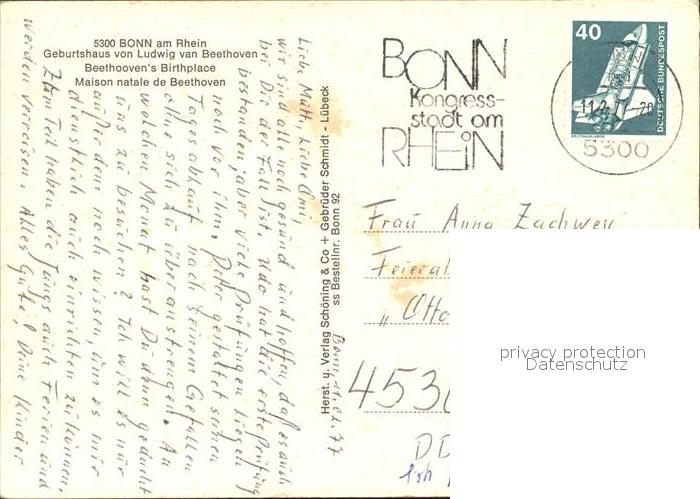 5300 BONN am Rhein
Geburtshaus von Ludwig van Beethoven
Beethooven's Birthplace
Maison natale de Beethoven
BONN
Kongress-
stadt am
RHEIN
40
DEUTSCHE BUNDESPOST
5300
Herst. u. Verlag Schöning & Co + Gebrüder Schmidt - Lübeck
ss Bestellnr. Bonn 92
Bonn, 11.02.77
Liebe Mutti, Liebe Omi,
wir sind alle noch gesund und hoffen, daß es auch
bei Dir der Fall ist. Udo hat die erste Prüfung
bestanden, aber viele Prüfungen liegen
noch vor ihm. Peter gestaltet seinen
Tagesablauf nach seinem Gefallen
ohne sich zu überanstrengen. An
welchen Monat hast Du denn gedacht
uns zu besuchen? Ich will es nur
außerdem noch wissen, um es mir
dienstlich auch einrichten zu können.
Zum Teil haben die Jungs auch Ferien und
werden verreisen. Alles Gute! Deine Kinder
Frau Anna
"Otto
453
DD
privacy protection
Datenschutz